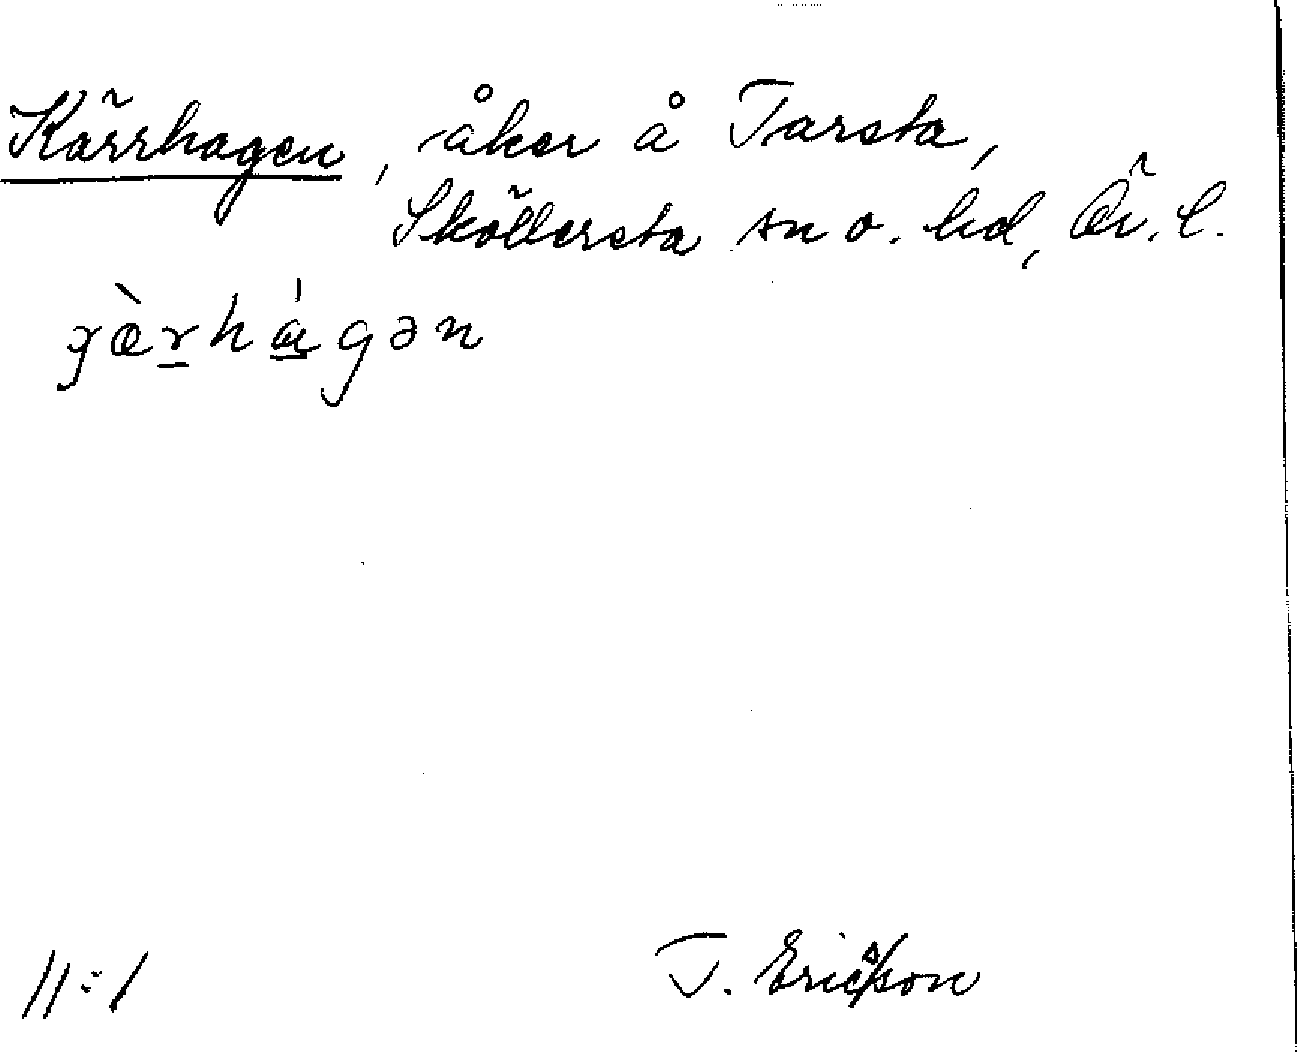 Kärrhagen, åker å Tarsta,
Sköllersta sn o. hd, Ör. l.
11:1
T. Ericsson